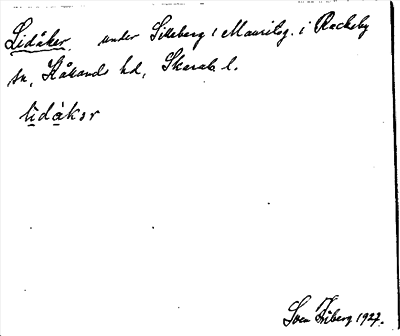 Lidåker. under Silleberg, Mauritzg. i Rackeby
sn, Kållands hd, Skarab. l.
lìdàkər
Sven Friberg 1927.